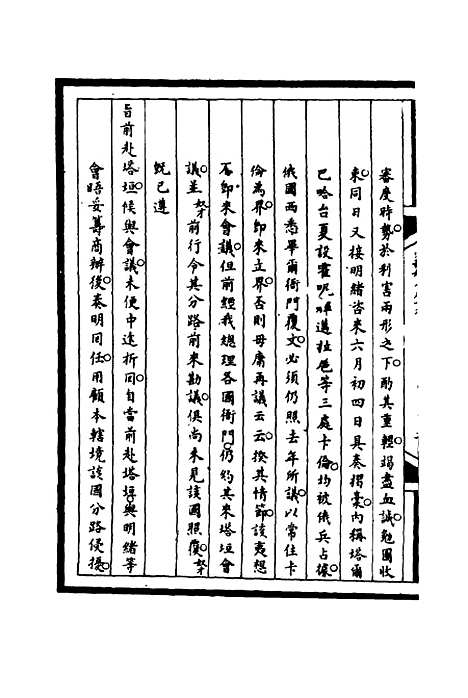 審度時勢於利害兩形之下酌其重輕竭盡血誠勉圖收
束同日又接明緒咨來六月初四日具奏摺稾內稱塔爾
巴哈台夏設霍呢邁拉扈等三處卡倫均被俄兵占據
俄國西悉畢爾衙門覆文必須仍照去年所議以常住卡
倫為界卽來立界否則毋庸再議云云揆其情節該夷想
不卽來會議但前經我總理各國衙門仍約其來塔垣會
議並奴才前行令其分路前來勘議俱尚未見該國照覆奴才
旣已遵
旨前赴塔垣候與會議未便中途折回自當前赴塔垣與明緒等
會晤妥籌商辦後奏明回任用顧本轄境該國分路侵擾